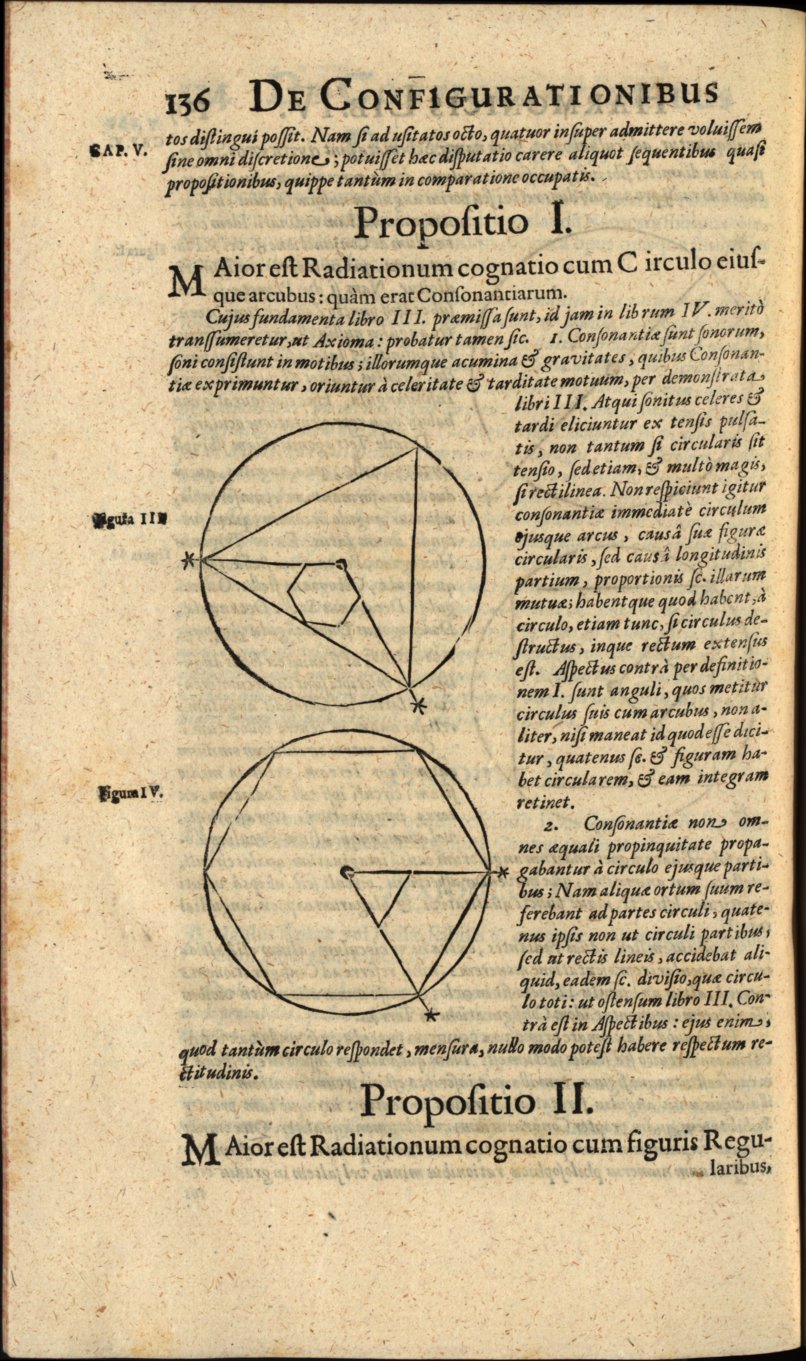 136 DE CONFIGURATIONIBUS
CAP. V.
tos diſtingui poſſit. Nam ſi ad uſitatos octo, quatuor inſuper admittere voluiſſem
ſine omni diſcretione; potuiſſet hæc diſputatio carere aliquot ſequentibus quaſi
propoſitionibus, quippe tantùm in comparatione occupatis.
Propoſitio I.
MAior eſt Radiationum cognatio cum C irculo eiuſ-
que arcubus: quàm erat Conſonantiarum.
Cujus fundamenta libro III. præmiſſa ſunt, id jam in librum IV. meritò
tranſſumeretur, ut Axioma: probatur tamen ſic. 1. Conſonantiæ ſunt ſonorum,
ſoni conſiſtunt in motibus; illorumque acumina & gravitates, quibus Conſonan-
tiæ exprimuntur, oriuntur à celeritate & tarditate motuum, per demonſtrata
libri III. Atqui ſonitus celeres &
tardi eliciuntur ex tenſis pulſa-
tis, non tantum ſi circularis ſit
tenſio, ſed etiam, & multò magis,
ſi rectilinea. Non reſpiciunt igitur
conſonantiæ immediatè circulum
ejusque arcus, causâ ſuæ figuræ
circularis, ſed causâ longitudinis
partium, proportionis ſc. illarum
mutuæ; habentque quod habent, à
circulo, etiam tunc, ſi circulus de-
ſtructus, inque rectum extenſus
eſt. Aſpectus contrà per definitio-
nem I. ſunt anguli, quos metitur
circulus ſuis cum arcubus, non a-
liter, niſi maneat id quod eſſe dici-
tur, quatenus ſc. & figuram ha-
bet circularem, & eam integram
retinet.
Figura III.
Figura IV.
2. Conſonantiæ non om-
nes æquali propinquitate propa-
gabantur à circulo ejusque parti-
bus; Nam aliquæ ortum ſuum re-
ferebant ad partes circuli, quate-
nus ipſis non ut circuli partibus,
ſed ut rectis lineis, accidebat ali-
quid, eadem ſc. diviſio, quæ circu-
lo toti: ut oſtenſum libro III. Con-
trà eſt in Aſpectibus: ejus enim,
quod tantùm circulo reſpondet, menſura, nullo modo poteſt habere reſpectum re-
ctitudinis.
Propoſitio II.
MAior eſt Radiationum cognatio cum figuris Regu-
laribus,